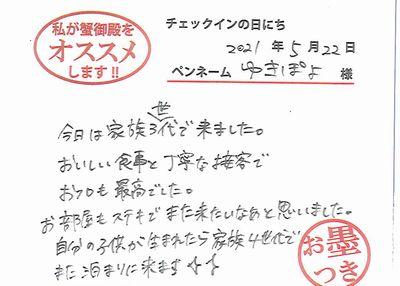 私が蟹御殿を
オススメ
します!!
チェックインの日にち
2021年5月22日
ペンネーム ゆきぽよ 様
今日は家族3世代で来ました。
おいしい食事と丁寧な接客で
お风呂も最高でした。
お部屋もステキでまた来たいなあと思いました。
自分の子供が生まれたら家族4世代で
また泊まりに来ます
お墨
つき